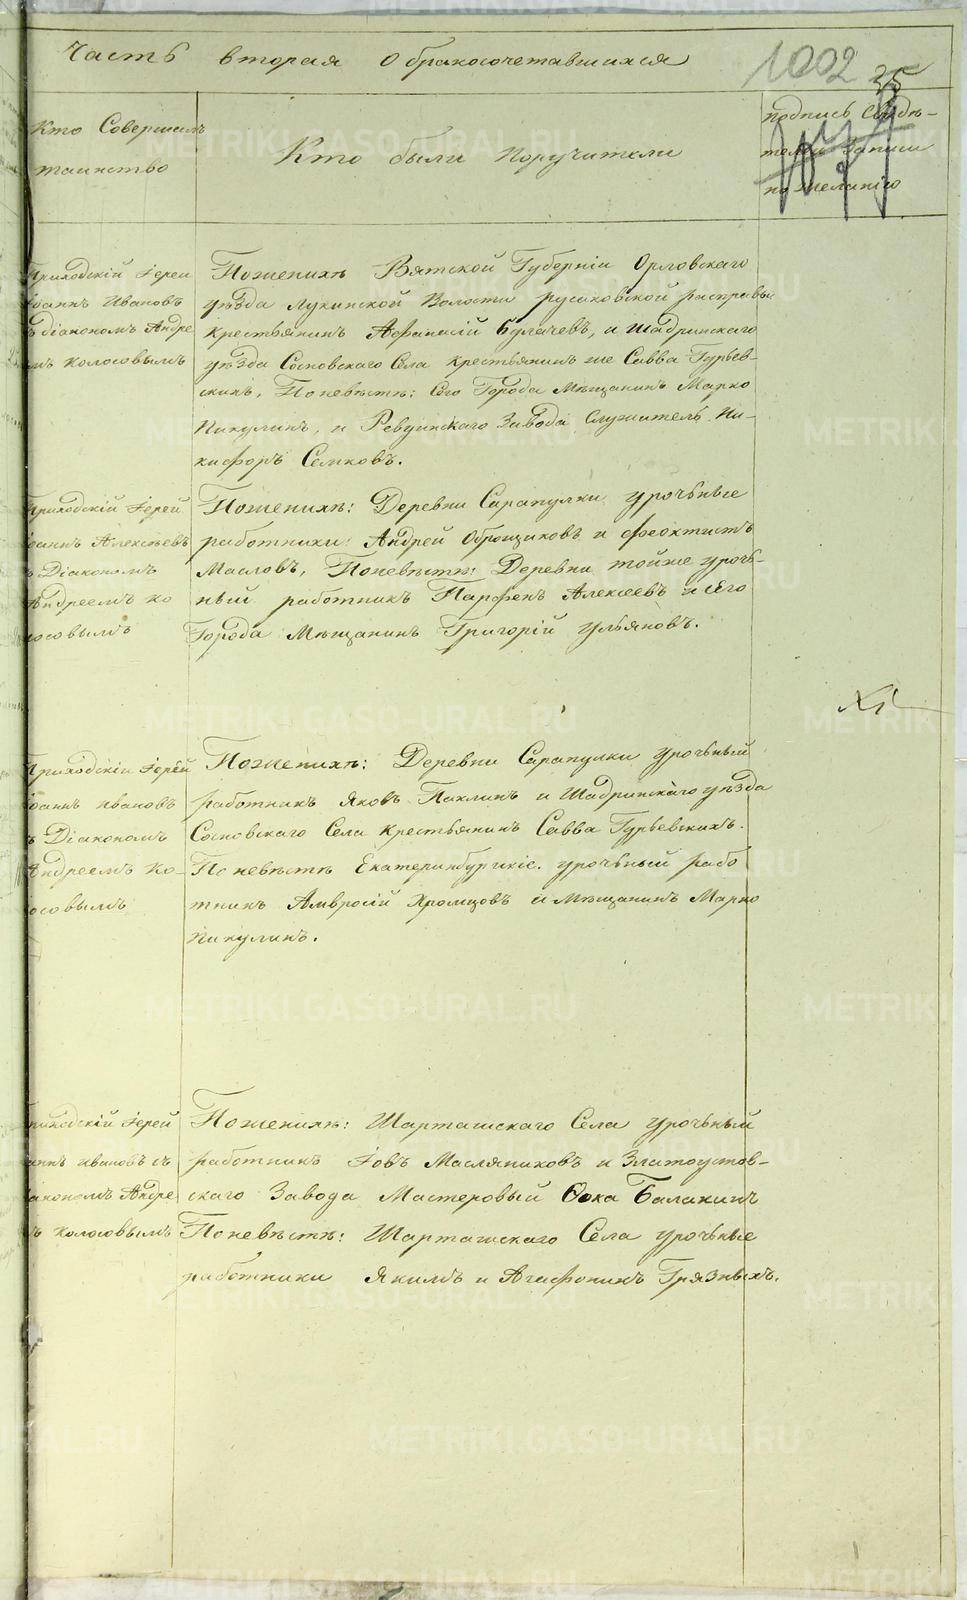 Часть вторая о бракосочетавшихся
1002 35
Кто Совершалъ
таинство
Кто были поручители
подпись Свидѣ-
телей записи
по желанію
Приходскій Іерей
Іоаннъ Ивановъ
съ діакономъ Андре
емъ Колосовымъ
Поженихѣ Вятской Губерніи Орловскаго
уѣзда Лукинской Волости Русановской расправы
крестьянинъ Афанасій Булачевъ, и Шадринскаго
уѣзда Сосновскаго Села крестьянинъ же Савва Гурьев-
скихъ, Поневѣстѣ: Сего Города Мѣщанинъ Марко
Пикулинъ, и Ревдинскаго Завода Служитель Ни-
кифоръ Семковъ.
Приходскій Іерей
Іоаннъ Алексѣевъ
съ Діакономъ
Андреемъ Ко
лосовымъ
Поженихѣ: Деревни Сарапулки урочные
работники: Андрей Оброщиковъ и Феоктистъ
Масловъ, Поневѣстѣ: Деревни тойже уроч-
ный работникъ Парфенъ Алексѣевъ и сего
Города Мѣщанинъ Григорій Ульяновъ.
Приходскій Іерей
Іоаннъ Ивановъ
съ Діакономъ
Андреемъ Ко-
лосовымъ
Поженихѣ: Деревни Сарапулки урочный
работникъ Яковъ Паклинъ и Шадринскаго уѣзда
Сосновскаго Села крестьянинъ Савва Гурьевскихъ.
Поневѣстѣ Екатеринбургскіе. урочный рабо
тникъ Амвросій Хромцовъ и Мѣщанинъ Марко
Пикулинъ.
Приходскій Іерей
Іоаннъ Ивановъ съ
Діакономъ Андре
емъ Колосовымъ
Поженихѣ: Шарташскаго Села урочный
работникъ Іовъ Масляниковъ и Златоустов-
скаго Завода Мастеровый Фока Балакинъ
Поневѣстѣ: Шарташскаго Села урочные
работники Якимъ и Агафоникъ Грязныхъ.